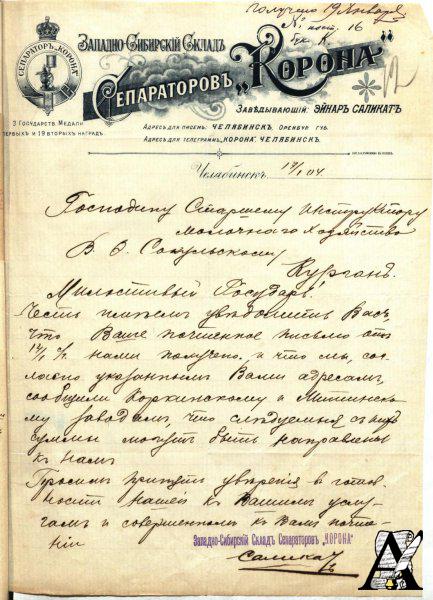 получено 19 Января
№ пост. 16
Западно-Сибирскій Складъ
Сепараторовъ „Корона“
СЕПАРАТОРЪ „КОРОНА“
Завѣдывающій: ЭЙНАРЪ САЛИКАТЪ
3 Государств. Медали
первыхъ и 19 вторыхъ наградъ.
Адресъ для писемъ: ЧЕЛЯБИНСКЪ. Оренбург. губ.
Адресъ для телеграммъ: „КОРОНА“ ЧЕЛЯБИНСКЪ.
Челябинскъ 17/I 04
Господину Старшему Инструктору
молочнаго хозяйства
В. Э. Сокульскому
Курганъ.
Милостивый Государь!
Честь имѣемъ увѣдомить Васъ,
что Ваше почтенное письмо отъ
нами получено, и что мы, со-
гласно указаннымъ Вами адресамъ,
сообщили Боркинскому и Митинск-
му заводамъ, что слѣдуемыя съ нихъ
суммы могутъ быть направлены
къ намъ
Просимъ принять увѣренія въ готов-
ности нашей къ Вашимъ услу-
гамъ и совершенномъ къ Вамъ почте-
ніи
Западно-Сибирскій Складъ Сепараторовъ „КОРОНА“
Саликатъ
А